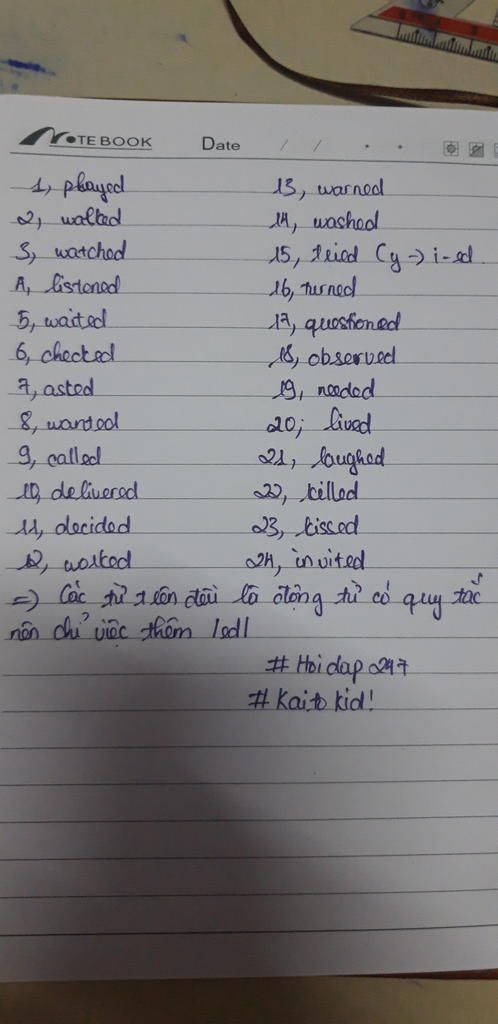 NOTEBOOK Date / / . .
1, played
2, walked
3, watched
4, listened
5, waited
6, checked
7, asked
8, wanted
9, called
10, delivered
11, decided
12, worked
13, warned
14, washed
15, tried (y -> i-ed
16, turned
17, questioned
18, observed
19, needed
20; lived
21, laughed
22, killed
23, kissed
24, invited
=) Các từ trên đều là động từ có quy tắc
nên chỉ việc thêm /ed/
# Hoidap247
# Kaito kid!